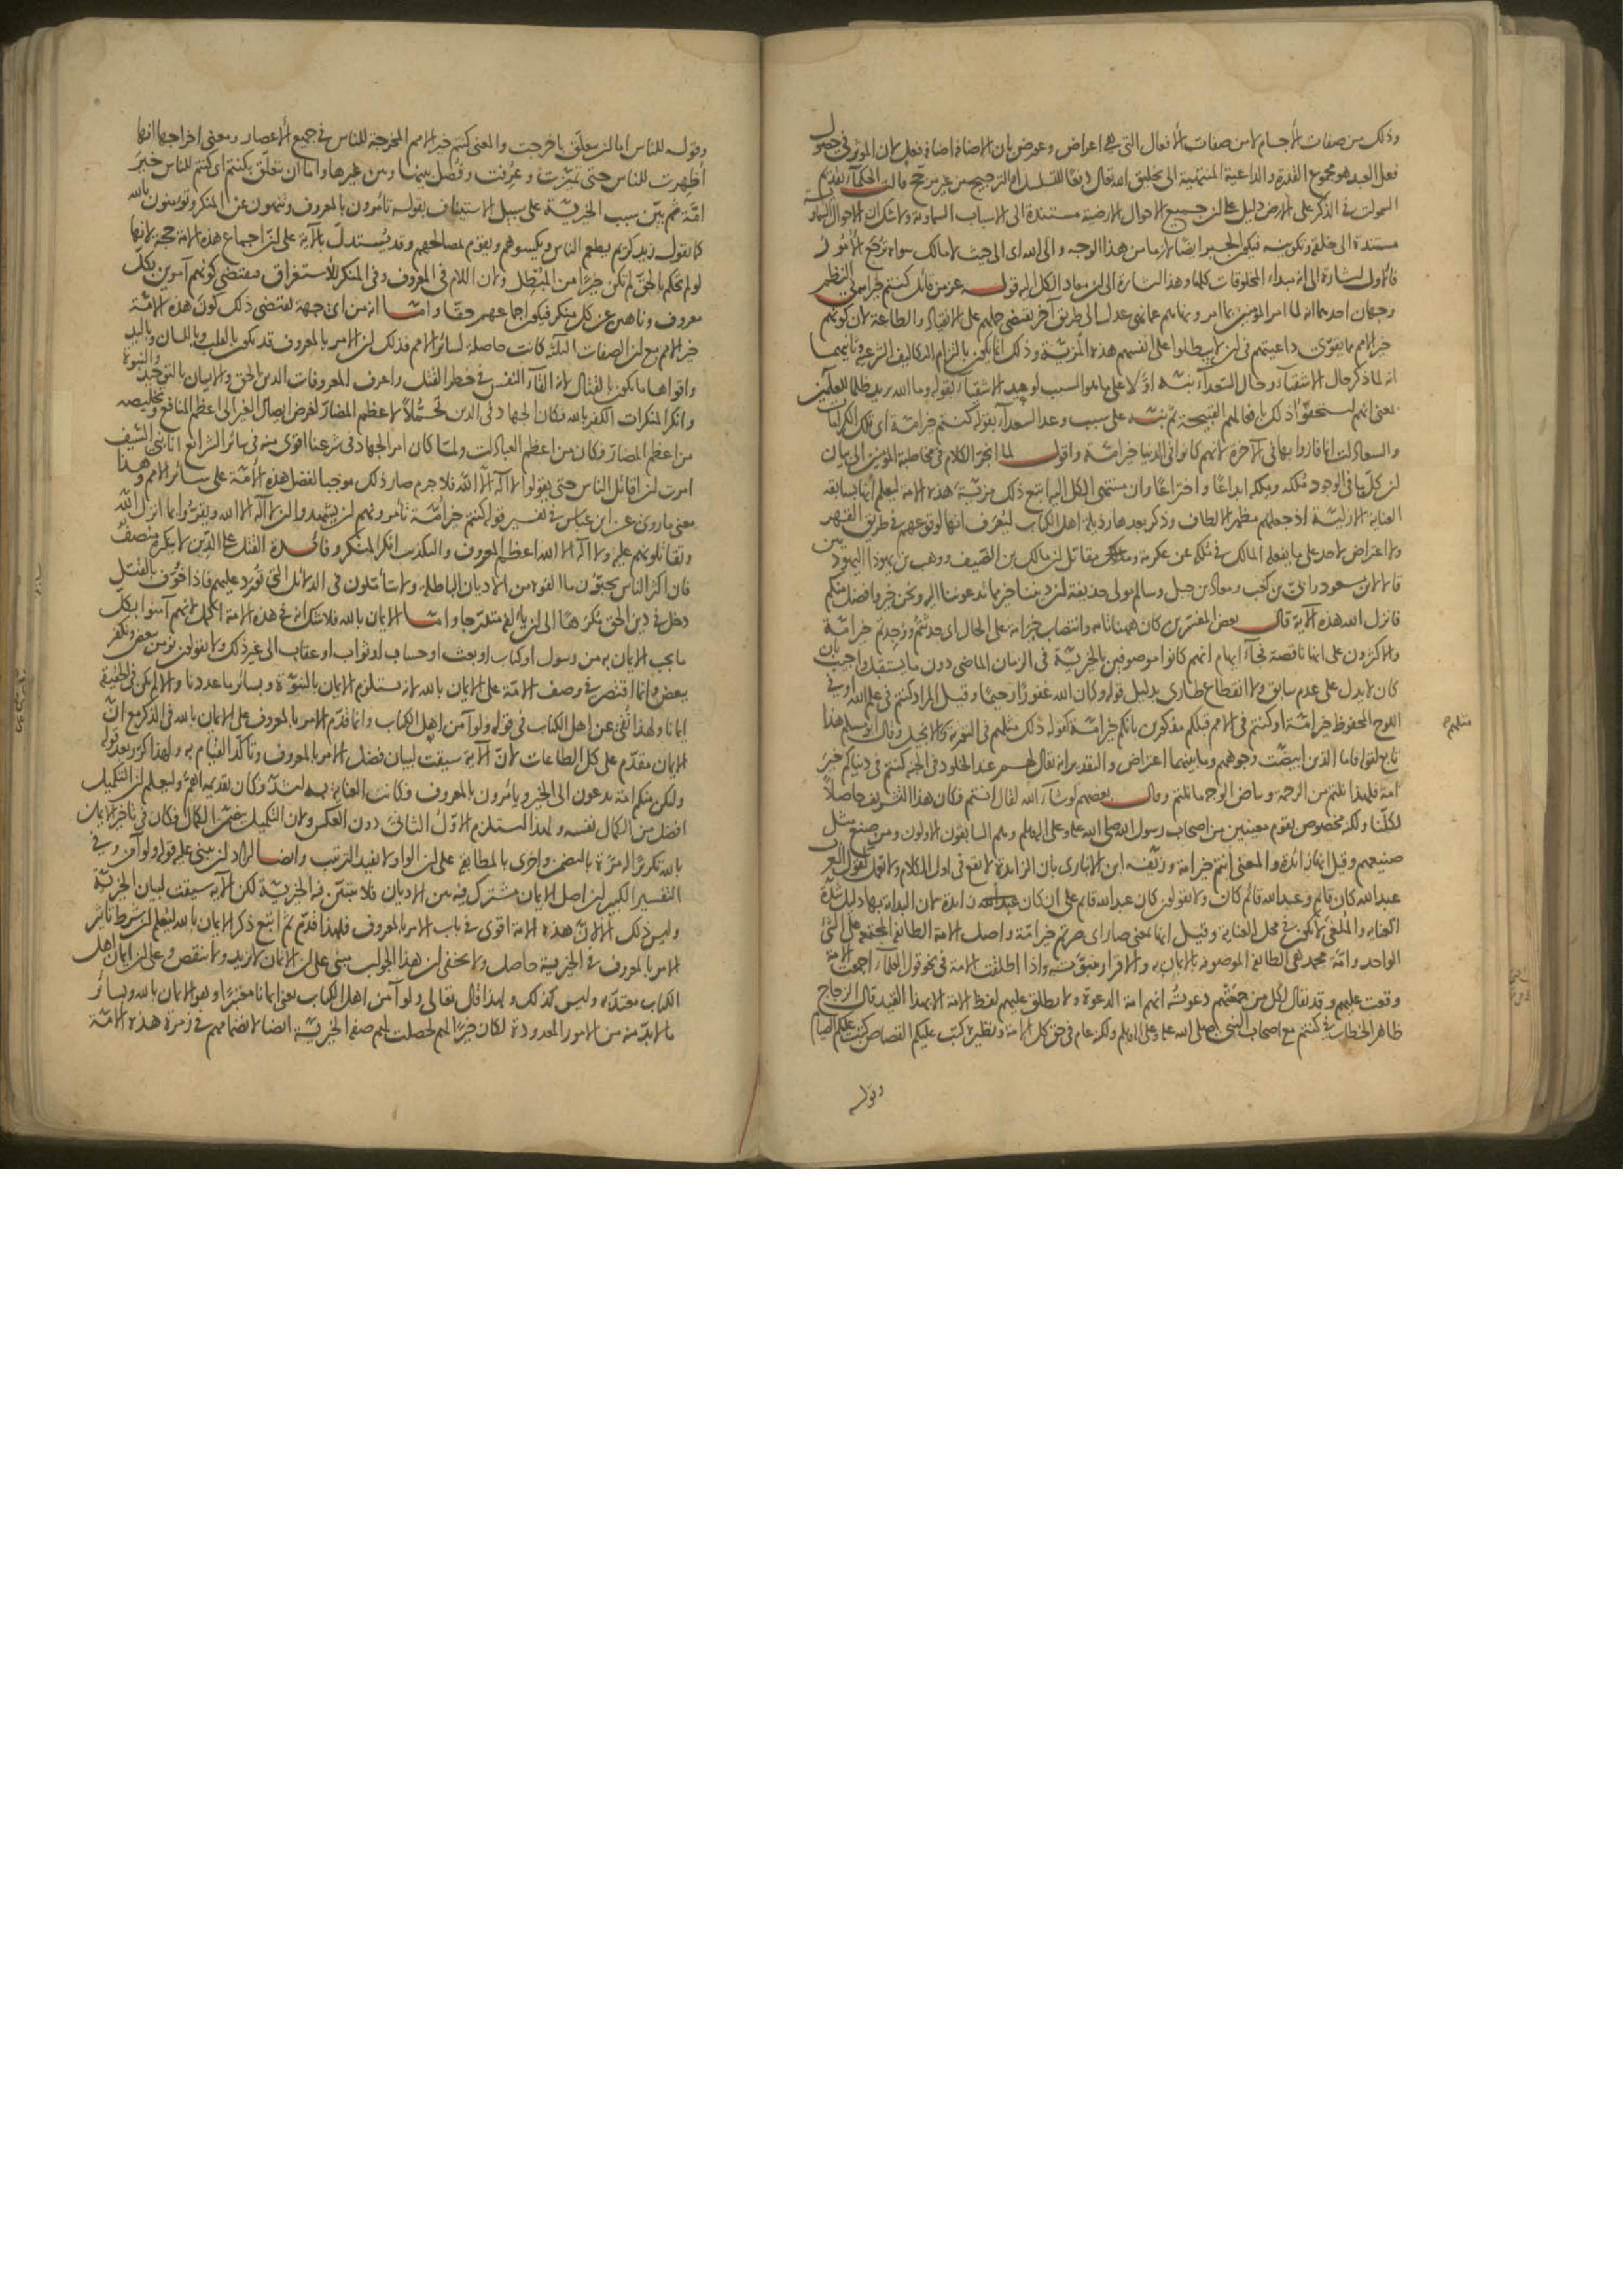 وذلك من صفات الأجسام لا من صفات الأفعال التي هي اعراض وعورض بان الاضافة اضافة فعل لان المؤثر في حصول
فعل العبد هو مجموع القدرة والداعية المنتهية الى تخليق الله تعالى دفعا للتسلسل او الترجيح من غير مرجح قالت الحكماء تقديم
السموات في الذكر على الارض دليل على ان جميع الاحوال الارضية مستندة الى الاسباب السماوية ولا شك ان الاحوال السماوية
مستندة الى خلقه وتكوينه فيكون الجبر ايضا لازما من هذا الوجه والى الله اى الى حيث لا مالك سواه ترجع الأمور
فالاول اشارة الى انه مبداء المخلوقات كلها وهذا اشارة الى ان معاد الكل اليه قوله عز من قائل كنتم خير امة في النظم
وجهان احدهما انه لما امر المؤمنين بما امر ونهاهم عما نهى عدل الى طريق آخر يقتضي حملهم على الانقياد والطاعة لان كونهم
خير الامم مما يقوى داعيتهم في ان لا يبطلوا على انفسهم هذه المزية وذلك انما يكون بالتزام التكاليف الشرعية وثانيهما
انه لما ذكر حال الاشقياء وحال السعداء نبه اولا على ما هو السبب لوعيد الاشقياء بقوله وما الله يريد ظلما للعالمين
يعنى انهم استحقوا ذلك بافعالهم القبيحة ثم نبه على سبب وعد السعداء بقوله كنتم خير امة اى تلك الكرامات
والسعادات انما فازوا بها في الآخرة لانهم كانوا في الدنيا خير امة واقول لما انجر الكلام في مخاطبة المؤمنين الى بيان
ان كل ما في الوجود ملكه وملكه ابداعا واختراعا وان منتهى الكل اليه اتبع ذلك مزية هذه الامة ليعلم انها بسابقة
العناية الازلية اذ جعلهم مظهر الالطاف وذكر بعدها رذيلة اهل الكتاب ليعرف انها لوقوعهم في طريق القهر
ولا اعتراض لاحد على ما يفعله المالك في ملكه عن عكرمة ومقاتل ان مالك بن الصيف ووهب بن يهودا اليهوديين
قالا لابن مسعود وابى بن كعب ومعاذ بن جبل وسالم مولى حذيفة ان ديننا خير مما تدعوننا اليه ونحن خير وافضل منكم
فانزل الله هذه الآية قال بعض المفسرين كان ههنا تامة وانتصاب خير امة على الحال اى حدثتم ووجدتم خير امة
والاكثرون على انها ناقصة فجاء ايهام انهم كانوا موصوفين بالخيرية في الزمان الماضى دون ما يستقبل واجيب بان
كان لا يدل على عدم سابق ولا انقطاع طارئ بدليل قوله وكان الله غفورا رحيما وقيل المراد كنتم في علم الله او في
اللوح المحفوظ خير امة او كنتم في الامم قبلكم مذكورين بانكم خير امة كقوله ذلك مثلهم في التورية والانجيل وقال ابو مسلم هذا
تابع لقوله فاما الذين ابيضت وجوههم وما بينهما اعتراض والتقدير انه يقال لهم عند الخلود في الجنة كنتم في دنياكم خير
امة فلهذا نلتم من الرحمة وبياض الوجه ما نلتم وقال بعضهم لو شاء الله لقال انتم فكان هذا التشريف حاصلا
لكلنا ولكنه مخصوص بقوم معينين من اصحاب رسول الله صلى الله عليه وعلى اله وسلم وهم السابقون الاولون ومن صنع مثل
صنيعهم وقيل انها زائدة والمعنى انتم خير امة وزيفه ابن الانبارى بان الزائدة لا تقع في اول الكلام ولا تعمل تقول العرب
عبد الله كان قائم وعبد الله قائم كان ولا يقولون كان عبد الله قائم على ان كان زائدة لان البداءة بها دليل شدة
العناية والملغى لا يكون في محل العناية وقيل انها بمعنى صار اى صرتم خير امة واصل الامة الطائفة المجتمعة على الشئ
الواحد وامة محمد هى الطائفة الموصوفة بالايمان به والاقرار بنبوته واذا اطلقت الامة في نحو قول العلماء اجمعت الامة
وقعت عليهم وقد يقال لكل من جمعتهم دعوته انهم امة الدعوة ولا يطلق عليهم لفظ الامة الا بهذا القيد قال الزجاج
ظاهر الخطاب في كنتم مع اصحاب النبى صلى الله عليه وعلى اله وسلم ولكنه عام في حق كل الامة ونظيره كتب عليكم القصاص كتب عليكم الصيام
وقوله
مثلهم
وقوله للناس اما ان يتعلق باخرجت والمعنى كنتم خير الامم المخرجة للناس في جميع الأعصار ومعنى اخراجها انها
أظهرت للناس حتى تميزت وعرفت وفصل بينها وبين غيرها واما ان يتعلق بكنتم اى كنتم للناس خير
امة ثم بين سبب الخيرية على سبيل الاستيناف بقوله تأمرون بالمعروف وتنهون عن المنكر وتؤمنون بالله
كما تقول زيد كريم يطعم الناس ويكسوهم ويقوم بمصالحهم وقد يستدل بالآية على ان اجماع هذه الامة حجة لانها
لو لم تحكم بالحق لم تكن خيرا من المبطل ولان اللام في المعروف وفي المنكر للأستغراق فيقتضى كونهم آمرين بكل
معروف وناهين عن كل منكر فيكون اجماعهم حقا واما انه من اى جهة يقتضى ذلك كون هذه الامة
خير الامم مع ان الصفات الثلثة كانت حاصلة لسائر الامم فذلك ان الامر بالمعروف قد يكون بالقلب وباللسان وباليد
واقواها ما يكون بالقتال لانه القاء النفس في خطر القتل واعرف المعروفات الدين الحق والايمان بالتوحيد والنبوة
وانكر المنكرات الكفر بالله فكان الجهاد في الدين تحملا لاعظم المضار لغرض ايصال الغير الى اعظم المنافع وتخليصه
من اعظم المضار وكان من اعظم العبادات ولما كان امر الجهاد في شرعنا اقوى منه في سائر الشرائع انا نبى السيف
امرت ان اقاتل الناس حتى يقولوا لا اله الا الله فلا جرم صار ذلك موجبا لفضل هذه الأمة على سائر الامم وهذا
معنى ما روى عن ابن عباس في تفسير قوله كنتم خير امة تأمرونهم ان يشهدوا ان لا اله الا الله ويقروا بما انزل الله
وتقاتلونهم عليه ولا اله الا الله اعظم المعروف والتكذيب انكر المنكر وفائدة القتل على الدين لا ينكره منصف
فان اكثر الناس يحبون ما الفوه من الاديان الباطلة ولا يتأملون في الدلائل التى تورد عليهم فاذا خوف بالقتل
دخل في دين الحق مكرها الى ان يألفه متدرجا واما الايمان بالله فلا شك انه في هذه الامة اكمل لانهم آمنوا بكل
ما يجب الايمان به من رسول او كتاب او بعث او حساب او ثواب او عقاب الى غير ذلك ولا يقولون نؤمن ببعض ونكفر
ببعض وانما اقتصر في وصف الامة على الايمان بالله لانه يستلزم الايمان بالنبوة وبسائر ما عددنا والا لم يكن في الحقيقة
ايمانا ولهذا نفى عن اهل الكتاب في قوله ولو آمن اهل الكتاب وانما قدم الامر بالمعروف على الايمان بالله في الذكر مع ان
الايمان مقدم على كل الطاعات لان الآية سيقت لبيان فضل الامر بالمعروف وتأكد القيام به ولهذا كرر بعد قوله
ولتكن منكم امة يدعون الى الخير ويأمرون بالمعروف فكانت العناية به اشد وكان تقديمه اهم وليعلم ان التكميل
افضل من الكمال نفسه ولهذا استلزم الاول الثانى دون العكس ولان التكميل يتضمن الكمال فكان في تأخير الايمان
بالله تكريرا له مرة بالتضمن واخرى بالمطابقة على ان الواو لا يفيد الترتيب وايضا اراد ان يبنى عليه قوله ولو آمن وفي
التفسير الكبير ان اصل الايمان مشترك فيه بين الاديان فلا يتبين فيه الخيرية لكن الآية سيقت لبيان الخيرية
وليس ذلك الا لان هذه الامة اقوى في باب الامر بالمعروف فلهذا قدم ثم اتبع ذكر الايمان بالله ليعلم ان شرط تأثير
الامر بالمعروف في الخيرية حاصل ولا يخفى ان هذا الجواب مبنى على ان الايمان لا يزيد ولا ينقص وعلى ان ايمان اهل
الكتاب معتد به وليس كذلك ولهذا قال تعالى ولو آمن اهل الكتاب يعنى ايمانا معتبرا وهو الايمان بالله وبسائر
ما لابد منه من الامور المعدودة لكان خيرا لهم لحصلت لهم صفة الخيرية ايضا لانضمامهم في زمرة هذه الامة